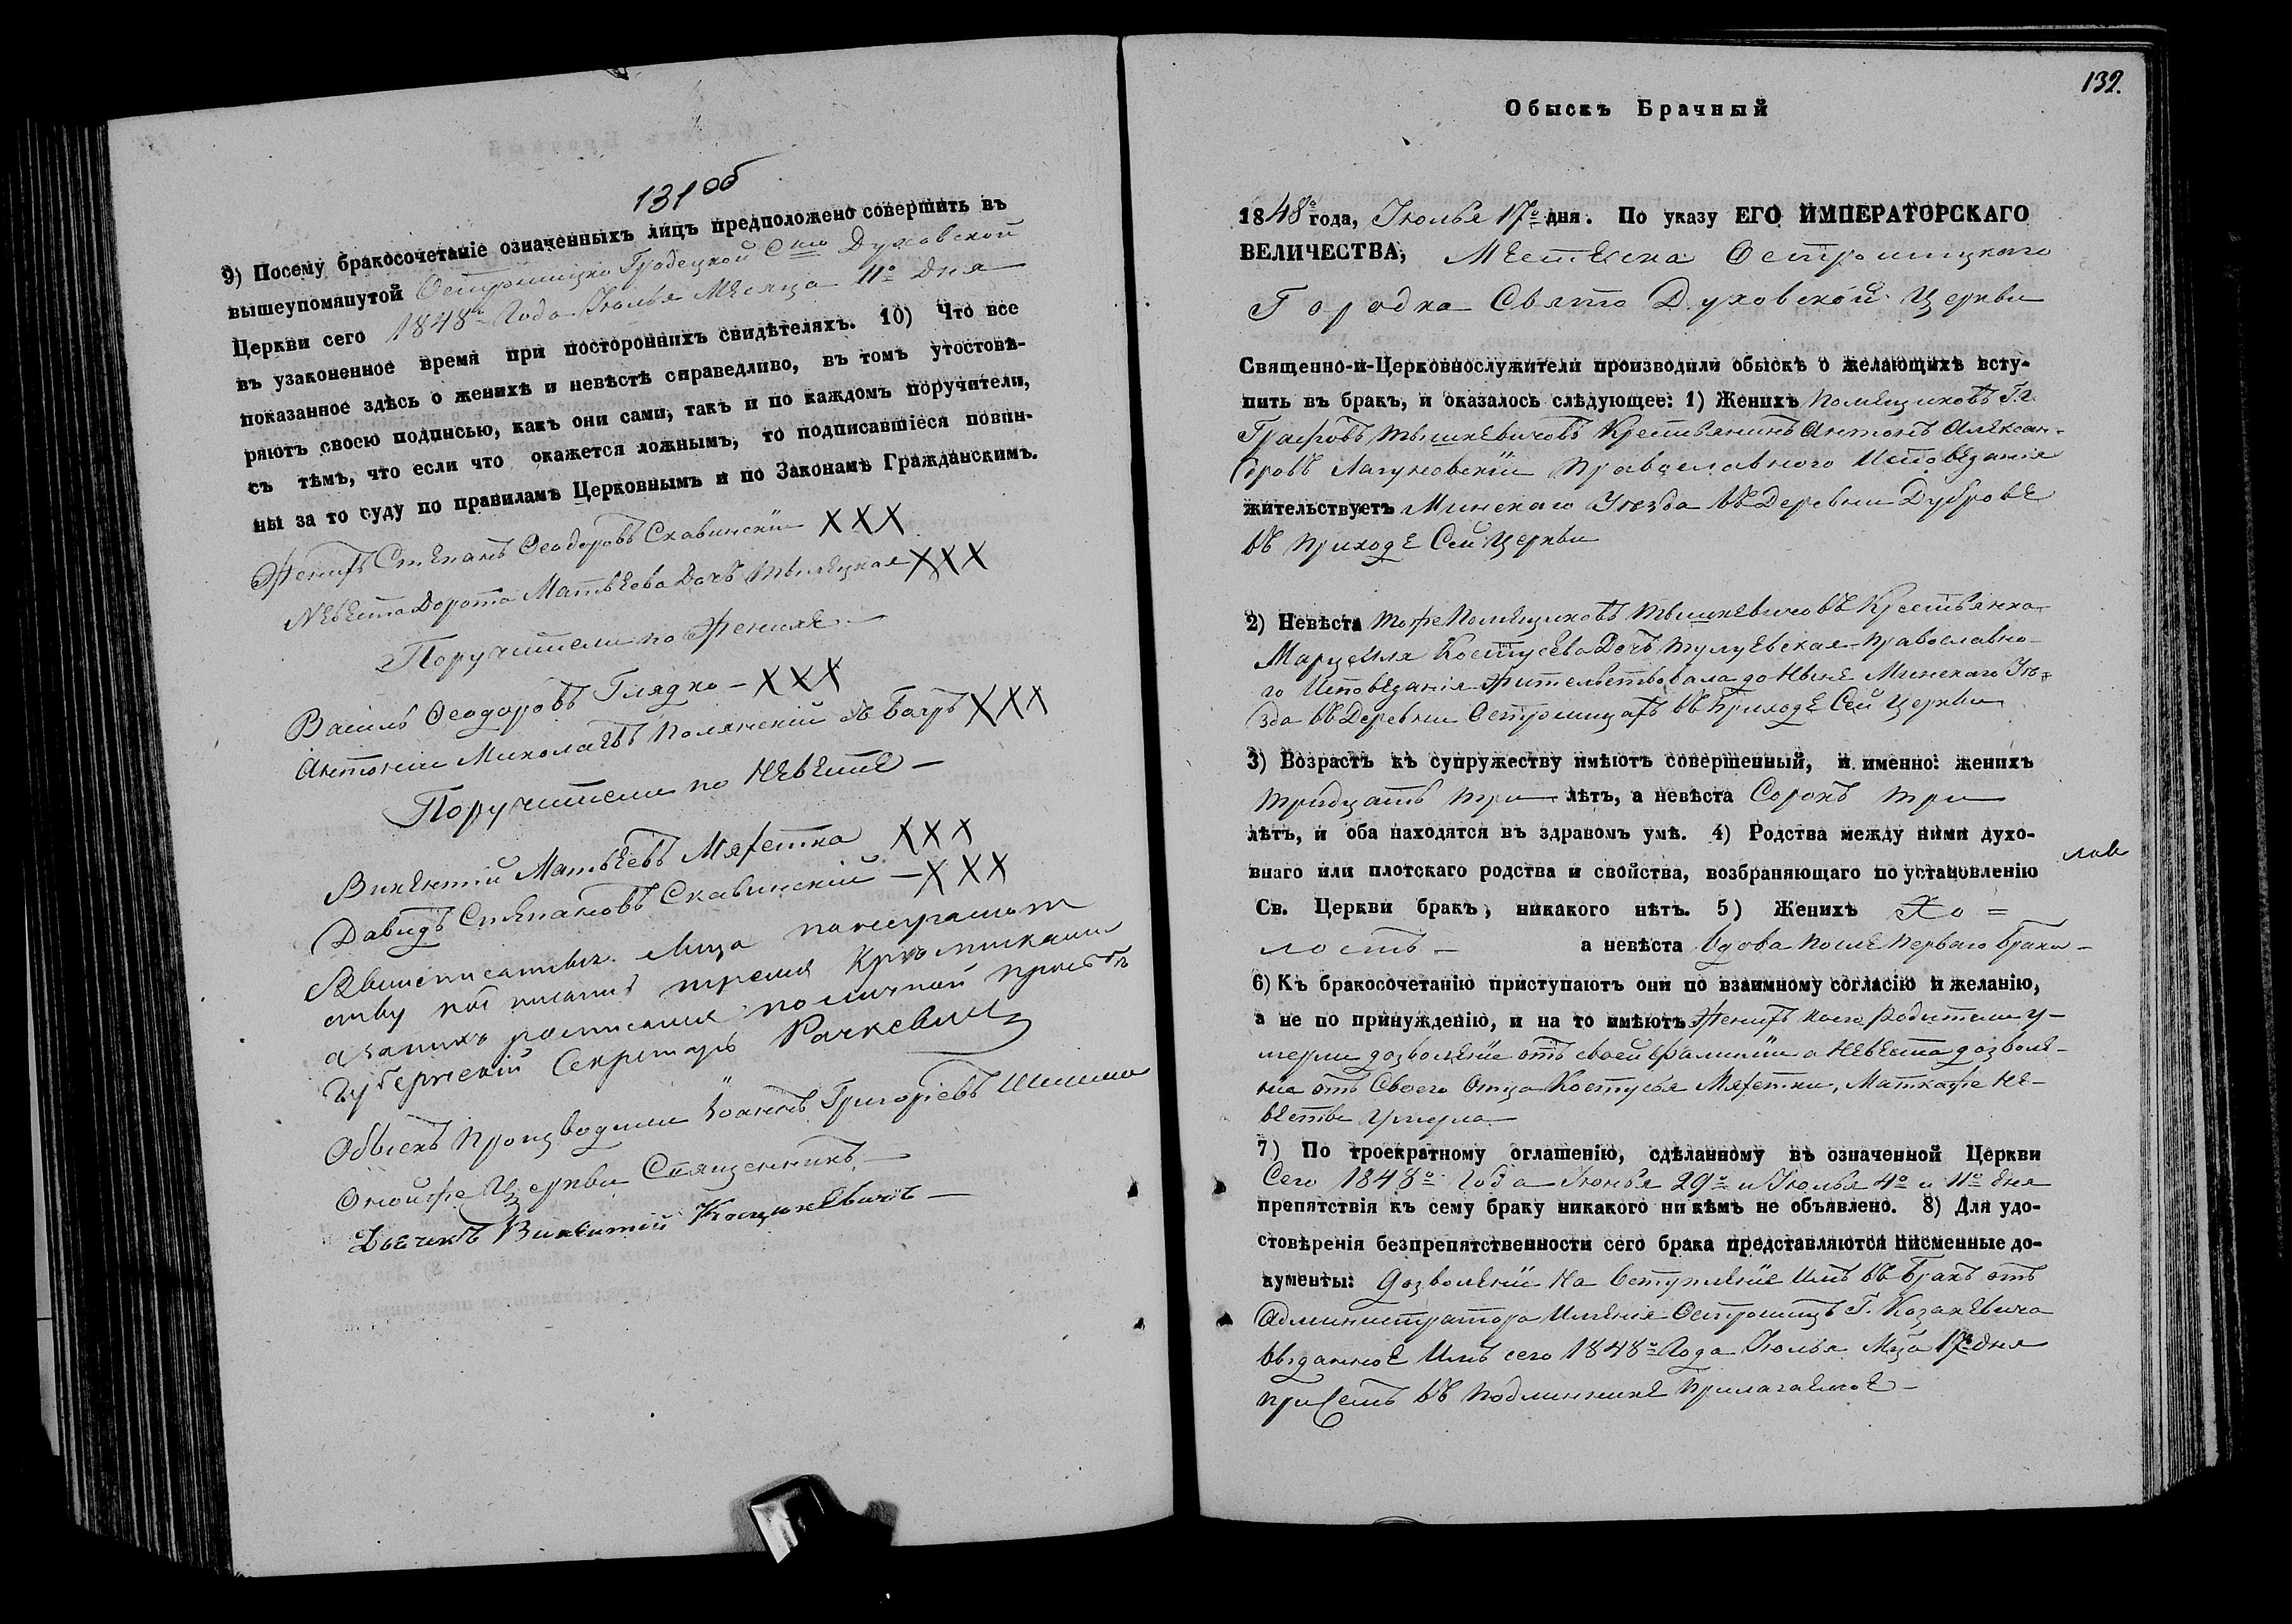 131 об
9) Посему бракосочетаніе означенныхъ лицъ предположено совершить въ
вышеупомянутой Острошицко Градецкой Сто Духовской
Церкви сего 1848го Года Іюлья Месяца 11о Дня
въ узаконенное время при постороннихъ свидѣтеляхъ. 10) Что все
показанное здѣсь о женихѣ и невѣстѣ справедливо, въ томъ утостовѣ-
ряютъ своею подписью, какъ они сами, такъ и по каждомъ поручители,
съ тѣмъ, что если что окажется ложнымъ, то подписавшіеся повин-
ны за то суду по правиламъ Церковнымъ и по Законамъ Гражданскимъ.
Женихъ Степанъ Феодоровъ Скавинскій XXX
Невеста Дорота Матвеева Дочъ XXX
Поручители по Женихе
Василь Феодоровъ Глядко – XXX
Антоній Миколаевъ Полянскій XXX
Поручители по Невесте –
Викентій Матвеевъ Мяжетка XXX
Давидъ Степановъ Скавинскій – XXX
Лица
ству тремя Крыжиками
росписался
Губернскій Секретарь Рачкевичъ
Обыскъ Производили Іоаннъ Григоріевъ
Оной же Церкви Священникъ –
Дьячекъ Викентій Коцюкевичъ –
132.
Обыскъ Брачный
1848о года, Іюлья 17о дня. По указу ЕГО ИМПЕРАТОРСКАГО
ВЕЛИЧЕСТВА, Местечка Острошицкого
Городка Свято Духовской Церкви
Священно-и-Церковнослужители производили обыскъ о желающихъ всту-
пить въ бракъ, и оказалось слѣдующее: 1) Женихъ Помещиковъ Гг.
Графовъ Тышкевичовъ Крестьянинъ Антонъ Алексан-
дровъ Лагуновскій Православного Исповеданія
жительствуетъ Минскаго Уезда въ Деревни Дуброве
въ Приходе Сей Церкви
2) Невѣста Тоже Помещиковъ Тышкевичовъ Крестьянка
Марцеля Костусева Дочъ Тулуевская Православно-
го Исповеданія Жительствовала до Ныне Минского Уе-
зда въ Деревни Острошицахъ въ Приходе Сей Церкви
3) Возрастъ къ супружеству имѣютъ совершенный, и именно: женихъ
тридцать три лѣтъ, а невѣста Сорокъ три
лѣтъ, и оба находятся въ здравомъ умѣ. 4) Родства между ними духо-
внаго или плотскаго родства и свойства, возбраняющаго по установленію
Св. Церкви бракъ, никакого нѣтъ. 5) Женихъ Хо=
лостъ – а невѣста Вдова После Перваго Брака –
6) Къ бракосочетанію приступаютъ они по взаимному согласію и желанію,
а не по принужденію, и на то имѣютъ Женихъ коего Родители у-
мерли дозволеніе отъ своей фамиліи а Невеста дозволе-
ніе отъ Своего Отца Костуся Мяжетки, Матка же Не-
весты Умерла
7) По троекратному оглашенію, сдѣланному въ означенной Церкви
Сего 1848о Года Іюнья 29о и Іюлья 4о и 11о дня
препятствія къ сему браку никакого ни кѣмъ не объявлено. 8) Для удо-
стовѣренія безпрепятственности сего брака представляются писменные до-
кументы: Дозволеніе На Вступленіе Имъ въ Бракъ отъ
Администратора Именія Острошицъ Г. Козакевича
выданное Имъ сего 1848о Года Іюлья Мца 17о дня
При Семъ въ Подлиннике Прилагаемое –